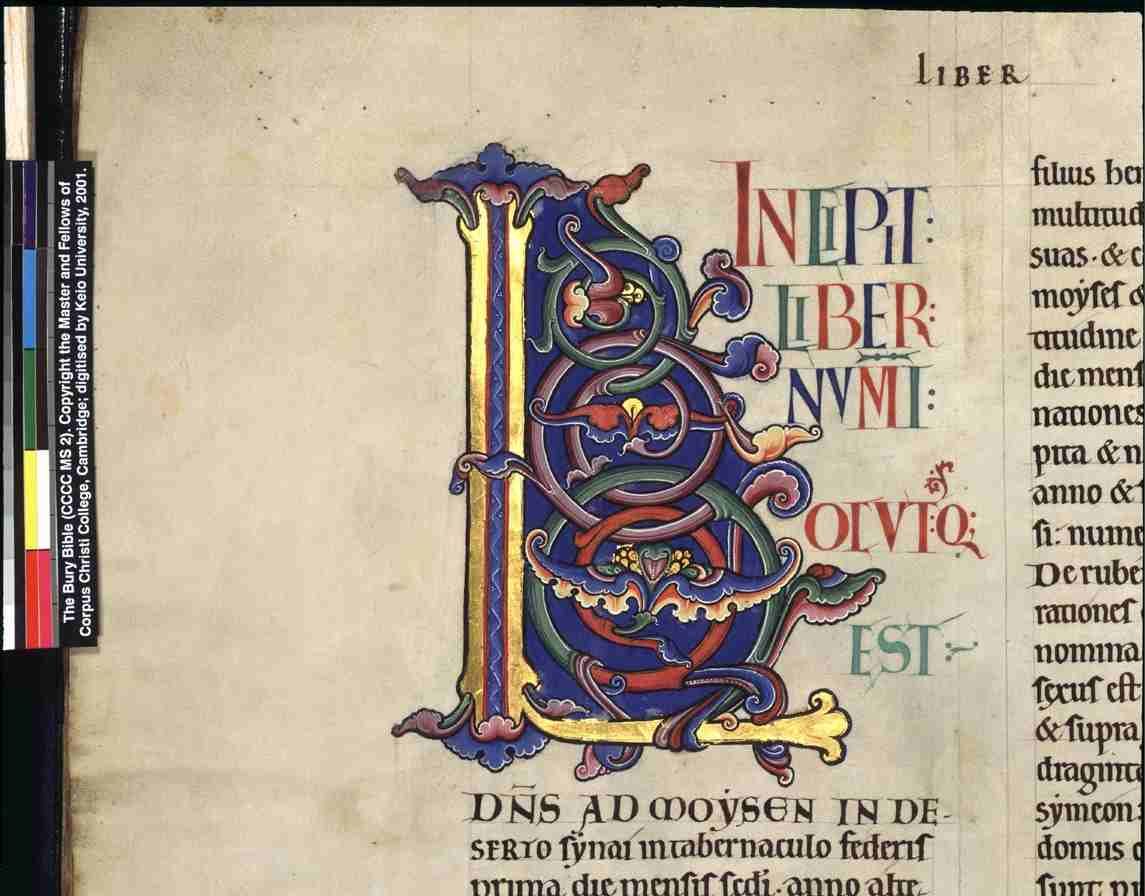 The Bury Bible (CCCC MS 2). Copyright the Master and Fellows of
Corpus Christi College, Cambridge; digitised by Keio University, 2001.
LIBER
INCIPIT:
LIBER:
NVMI:
L
OCVT:Q;
EST
DN̄S AD MOẏSEN IN DE-
SERTO sẏnai intabernaculo federis
prima die mensis sc̄di. anno alte
filius
multitud
suas. &
moẏses
titudine
die mens
nationes
pita & n
anno &
si: nume
De rube
rationes
nomina
sexus est
& supra
draginta
sẏmeon.
domus